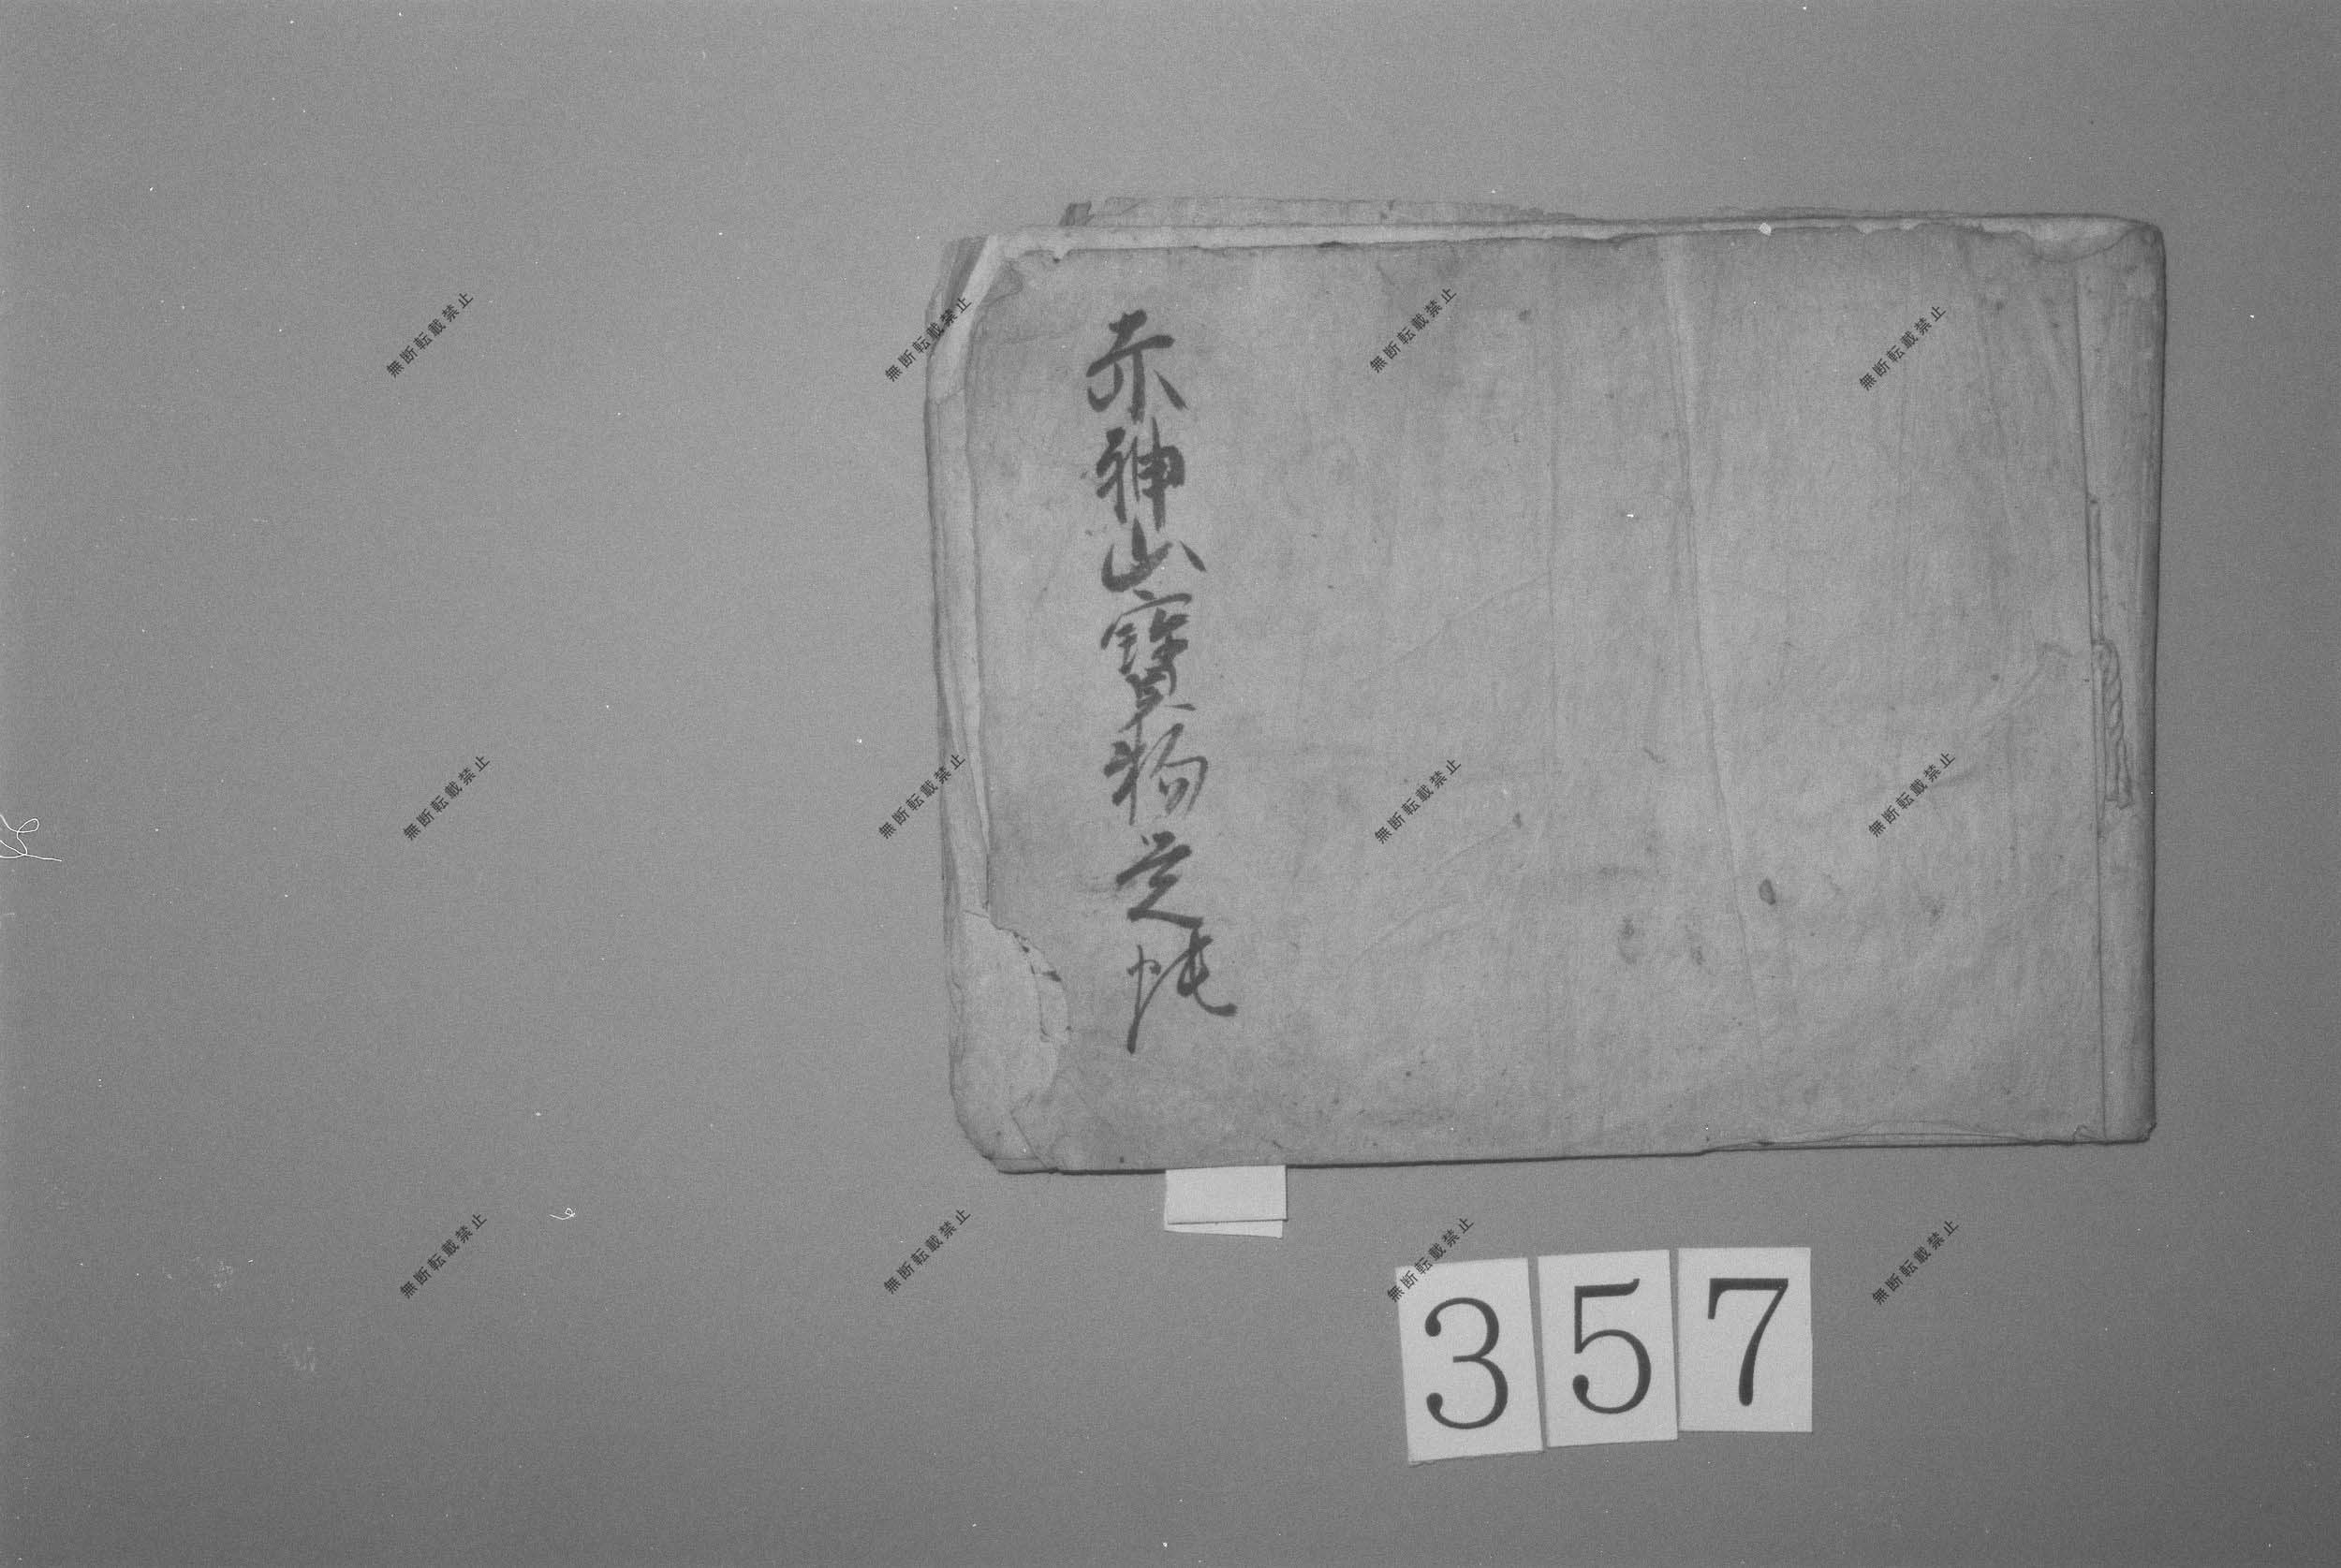 赤神山寳物覚帳
357
無断転載禁止
無断転載禁止
無断転載禁止
無断転載禁止
無断転載禁止
無断転載禁止
無断転載禁止
無断転載禁止
無断転載禁止
無断転載禁止
無断転載禁止
無断転載禁止